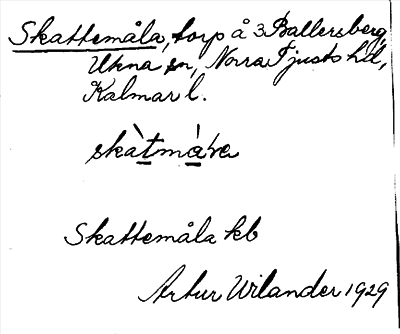 Skattemåla, torp å 3 Ballersberg,
Ukna sn, Norra Tjusts hd,
Kalmar l.
Skattemåla kb
Artur Wilander 1929